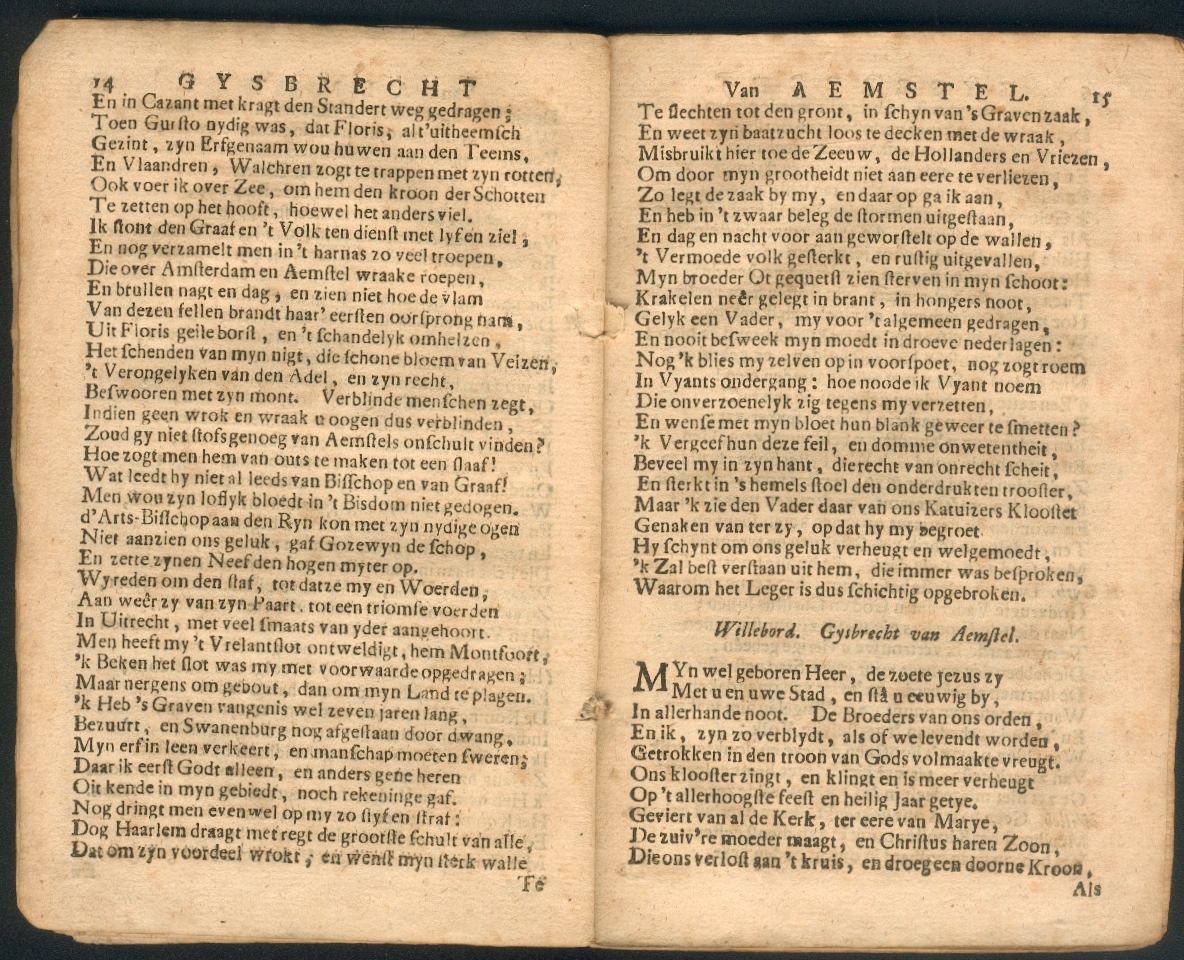 14 GYSBRECHT
En in Cazant met kragt den Standert weg gedragen;
Toen Guisto nydig was, dat Floris, alt'uitheemsch
Gezint, zyn Erfgenaam wou huwen aan den Teems,
En Vlaandren, Walchren zogt te trappen met zyn rotten,
Ook voer ik over Zee, om hem den kroon der Schotten
Te zetten op het hooft, hoewel het anders viel.
Ik ſtont den Graaf en 't Volk ten dienſt met lyf en ziel,
En nog verzamelt men in 't harnas zo veel troepen,
Die over Amſterdam en Aemſtel wraake roepen,
En brullen nagt en dag, en zien niet hoe de vlam
Van dezen fellen brandt haar' eerſten oorſprong nam,
Uit Floris geile borſt, en 't ſchandelyk omhelzen,
Het ſchenden van myn nigt, die ſchone bloem van Velzen,
't Verongelyken van den Adel, en zyn recht,
Beſwooren met zyn mont. Verblinde menſchen zegt,
Indien geen wrok en wraak u oogen dus verblinden,
Zoud gy niet ſtofs genoeg van Aemſtels onſchult vinden?
Hoe zogt men hem van outs te maken tot een ſlaaf!
Wat leedt hy niet al leeds van Biſſchop en van Graaf!
Men wou zyn loflyk bloedt in 't Bisdom niet gedogen.
d'Arts-Biſſchop aan den Ryn kon met zyn nydige ogen
Niet aanzien ons geluk, gaf Gozewyn de ſchop,
En zette zynen Neef den hogen myter op.
Wy reden om den ſtaf, tot datze my en Woerden,
Aan weêr zy van zyn Paart, tot een triomfe voerden
In Uitrecht, met veel ſmaats van yder aangehoort.
Men heeft my 't Vrelantſlot ontweldigt, hem Montfoort,
'k Beken het ſlot was my met voorwaarde opgedragen;
Maar nergens om gebout, dan om myn Land te plagen.
'k Heb 's Graven vangenis wel zeven jaren lang,
Bezuurt, en Swanenburg nog afgeſtaan door dwang,
Myn erf in leen verkeert, en manſchap moeten ſweren;
Daar ik eerſt Godt alleen, en anders gene heren
Oit kende in myn gebiedt, noch rekeninge gaf.
Nog dringt men evenwel op my zo ſtyfen ſtraf:
Dog Haarlem draagt met regt de grootſte ſchult van alle,
Dat om zyn voordeel wrokt, en wenſt myn ſterk walle
Te
Van AEMSTEL. 15
Te ſlechten tot den gront, in ſchyn van 's Graven zaak,
En weet zyn baatzucht loos te decken met de wraak,
Misbruikt hier toe de Zeeuw, de Hollanders en Vriezen,
Om door myn grootheidt niet aan eere te verliezen,
Zo legt de zaak by my, en daar op ga ik aan,
En heb in 't zwaar beleg de ſtormen uitgeſtaan,
En dag en nacht voor aan geworſtelt op de wallen,
't Vermoede volk geſterkt, en ruſtig uitgevallen,
Myn broeder Ot gequetſt zien ſterven in myn ſchoot:
Krakelen neêr gelegt in brant, in hongers noot,
Gelyk een Vader, my voor 't algemeen gedragen,
En nooit beſweek myn moedt in droeve nederlagen:
Nog 'k blies my zelven op in voorſpoet, nog zogt roem
In Vyants ondergang: hoe noode ik Vyant noem
Die onverzoenelyk zig tegens my verzetten,
En wenſe met myn bloet hun blank geweer te ſmetten?
'k Vergeef hun deze feil, en domme onwetentheit,
Beveel my in zyn hant, die recht van onrecht ſcheit,
En ſterkt in 's hemels ſtoel den onderdrukten trooſter,
Maar 'k zie den Vader daar van ons Katuizers Klooſtet
Genaken van ter zy, op dat hy my begroet.
Hy ſchynt om ons geluk verheugt en welgemoedt,
'k Zal beſt verſtaan uit hem, die immer was beſproken,
Waarom het Leger is dus ſchichtig opgebroken.
Willebord. Gysbrecht van Aemſtel.
MYn wel geboren Heer, de zoete jezus zy
Met u en uwe Stad, en ſtâ u eeuwig by,
In allerhande noot. De Broeders van ons orden,
En ik, zyn zo verblydt, als of we levendt worden,
Getrokken in den troon van Gods volmaakte vreugt.
Ons klooſter zingt, en klingt en is meer verheugt
Op 't allerhoogſte feeſt en heilig Jaar getye.
Geviert van al de Kerk, ter eere van Marye,
De zuiv're moeder maagt, en Chriſtus haren Zoon,
Die ons verloſt aan 't kruis, en droeg een doorne Kroon,
Als